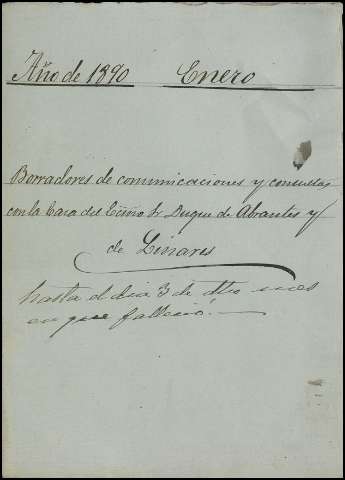 Año de 1890 Enero
Borradores de comunicaciones y consultas
con la Casa del Exmo Sr Duque de Abrantes y
de Linares
hasta el dia 3 de dho mes
en que falleció.